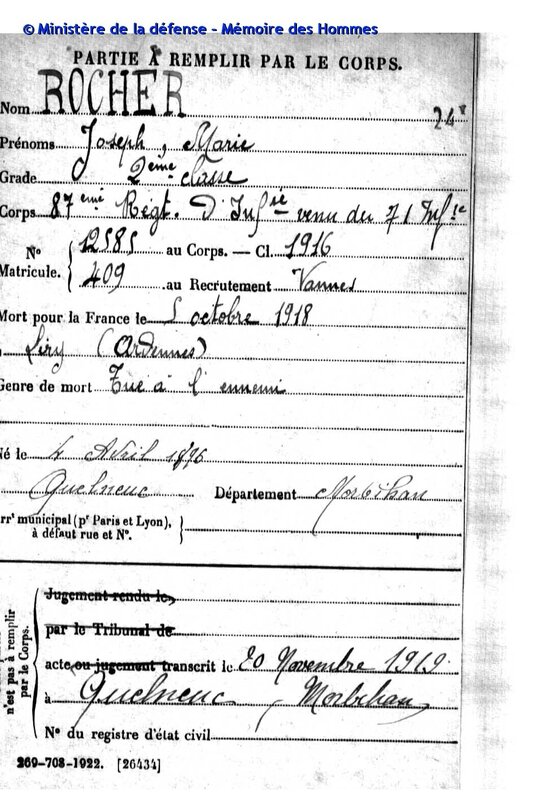 © Ministère de la défense - Mémoire des Hommes
PARTIE À REMPLIR PAR LE CORPS.
Nom ROCHER
Prénoms Joseph, Marie
Grade 2ème classe
Corps 87eme Régt. d'Infie venu du 71 Infie
No 12585 au Corps. — Cl. 1916
Matricule. 409 au Recrutement Vannes
Mort pour la France le 5 octobre 1918
Liry (Ardennes)
Genre de mort Tué à l'ennemi
Né le 4 Avril 1896
Quelneuc Département Morbihan
arrt municipal (pr Paris et Lyon),
à défaut rue et No.
Jugement rendu le,
par le Tribunal de
acte ou jugement transcrit le 20 Novembre 1919
à Quelneuc, Morbihan
No du registre d'état civil
n'est pas à remplir
par le Corps.
269-708-1922. [26434]